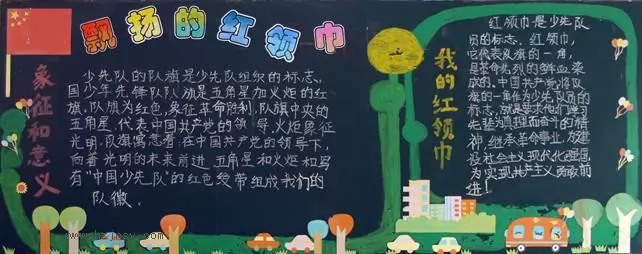 飘扬的红领巾
象征和意义
少先队的队旗是少先队组织的标志、
国少年先锋队队旗是五角星加火炬的红
旗、队旗为红色，象征革命胜利，队旗中央的
五角星，代表中国共产党的领导，火炬象征
光明，队旗寓意着：在中国共产党的领导下，
向着光明的未来前进，五角星和火炬和写
有“中国少先队”的红色绶带组成我们的
队徽、
我的红领巾
红领巾是少先队
员的标志、红领巾，
它代表队旗的一角，
是革命先烈的鲜血染
成的、中国共产党将队
旗的一角作为少先队员的
标志，就是要求他们的
先辈为真理而奋斗的精
神，继承革命事业，为建
设社会主义现代化强国，
为实现共产主义勇敢前
进！